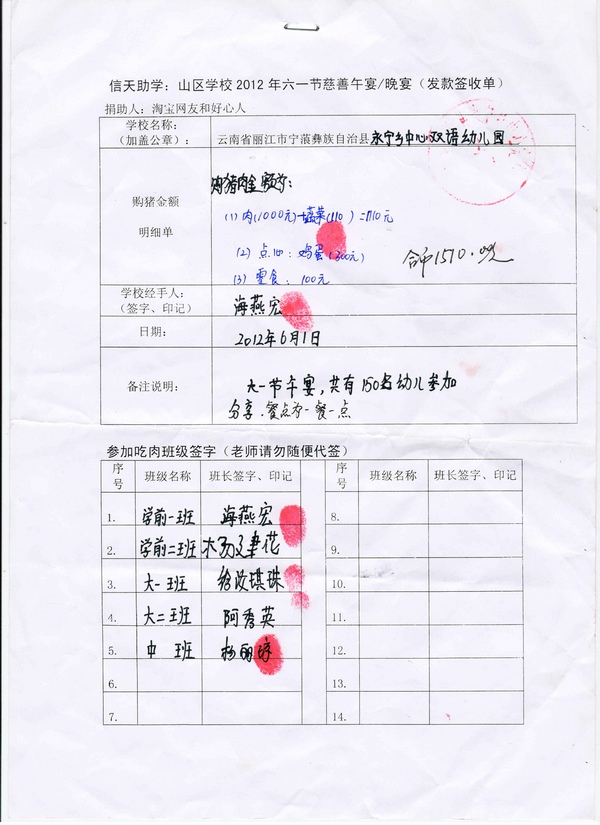 信天助学：山区学校2012年六一节慈善午宴/晚宴（发款签收单）
捐助人：淘宝网友和好心人
学校名称：
（加盖公章）：
云南省丽江市宁蒗彝族自治县永宁乡中心双语幼儿园
购猪金额
明细单
购猪肉金额为：
(1) 肉(1000元)+蔬菜(110)=1110元
(2) 点心：鸡蛋(300元)
(3) 零食：100元
合计1510.00元
学校经手人：
（签字、印记）
海燕宏
日期：
2012年6月1日
备注说明：
六一节午宴，共有150名幼儿参加
分享.餐点为一餐一点
参加吃肉班级签字（老师请勿随便代签）
序号 班级名称 班长签字、印记 序号 班级名称 班长签字、印记
1. 学前一班 海燕宏 8.
2. 学前二班 木易建花 9.
3. 大一班 琪珠 10.
4. 大二班 阿秀英 11.
5. 中 班 杨丽 12.
6. 13.
7. 14.